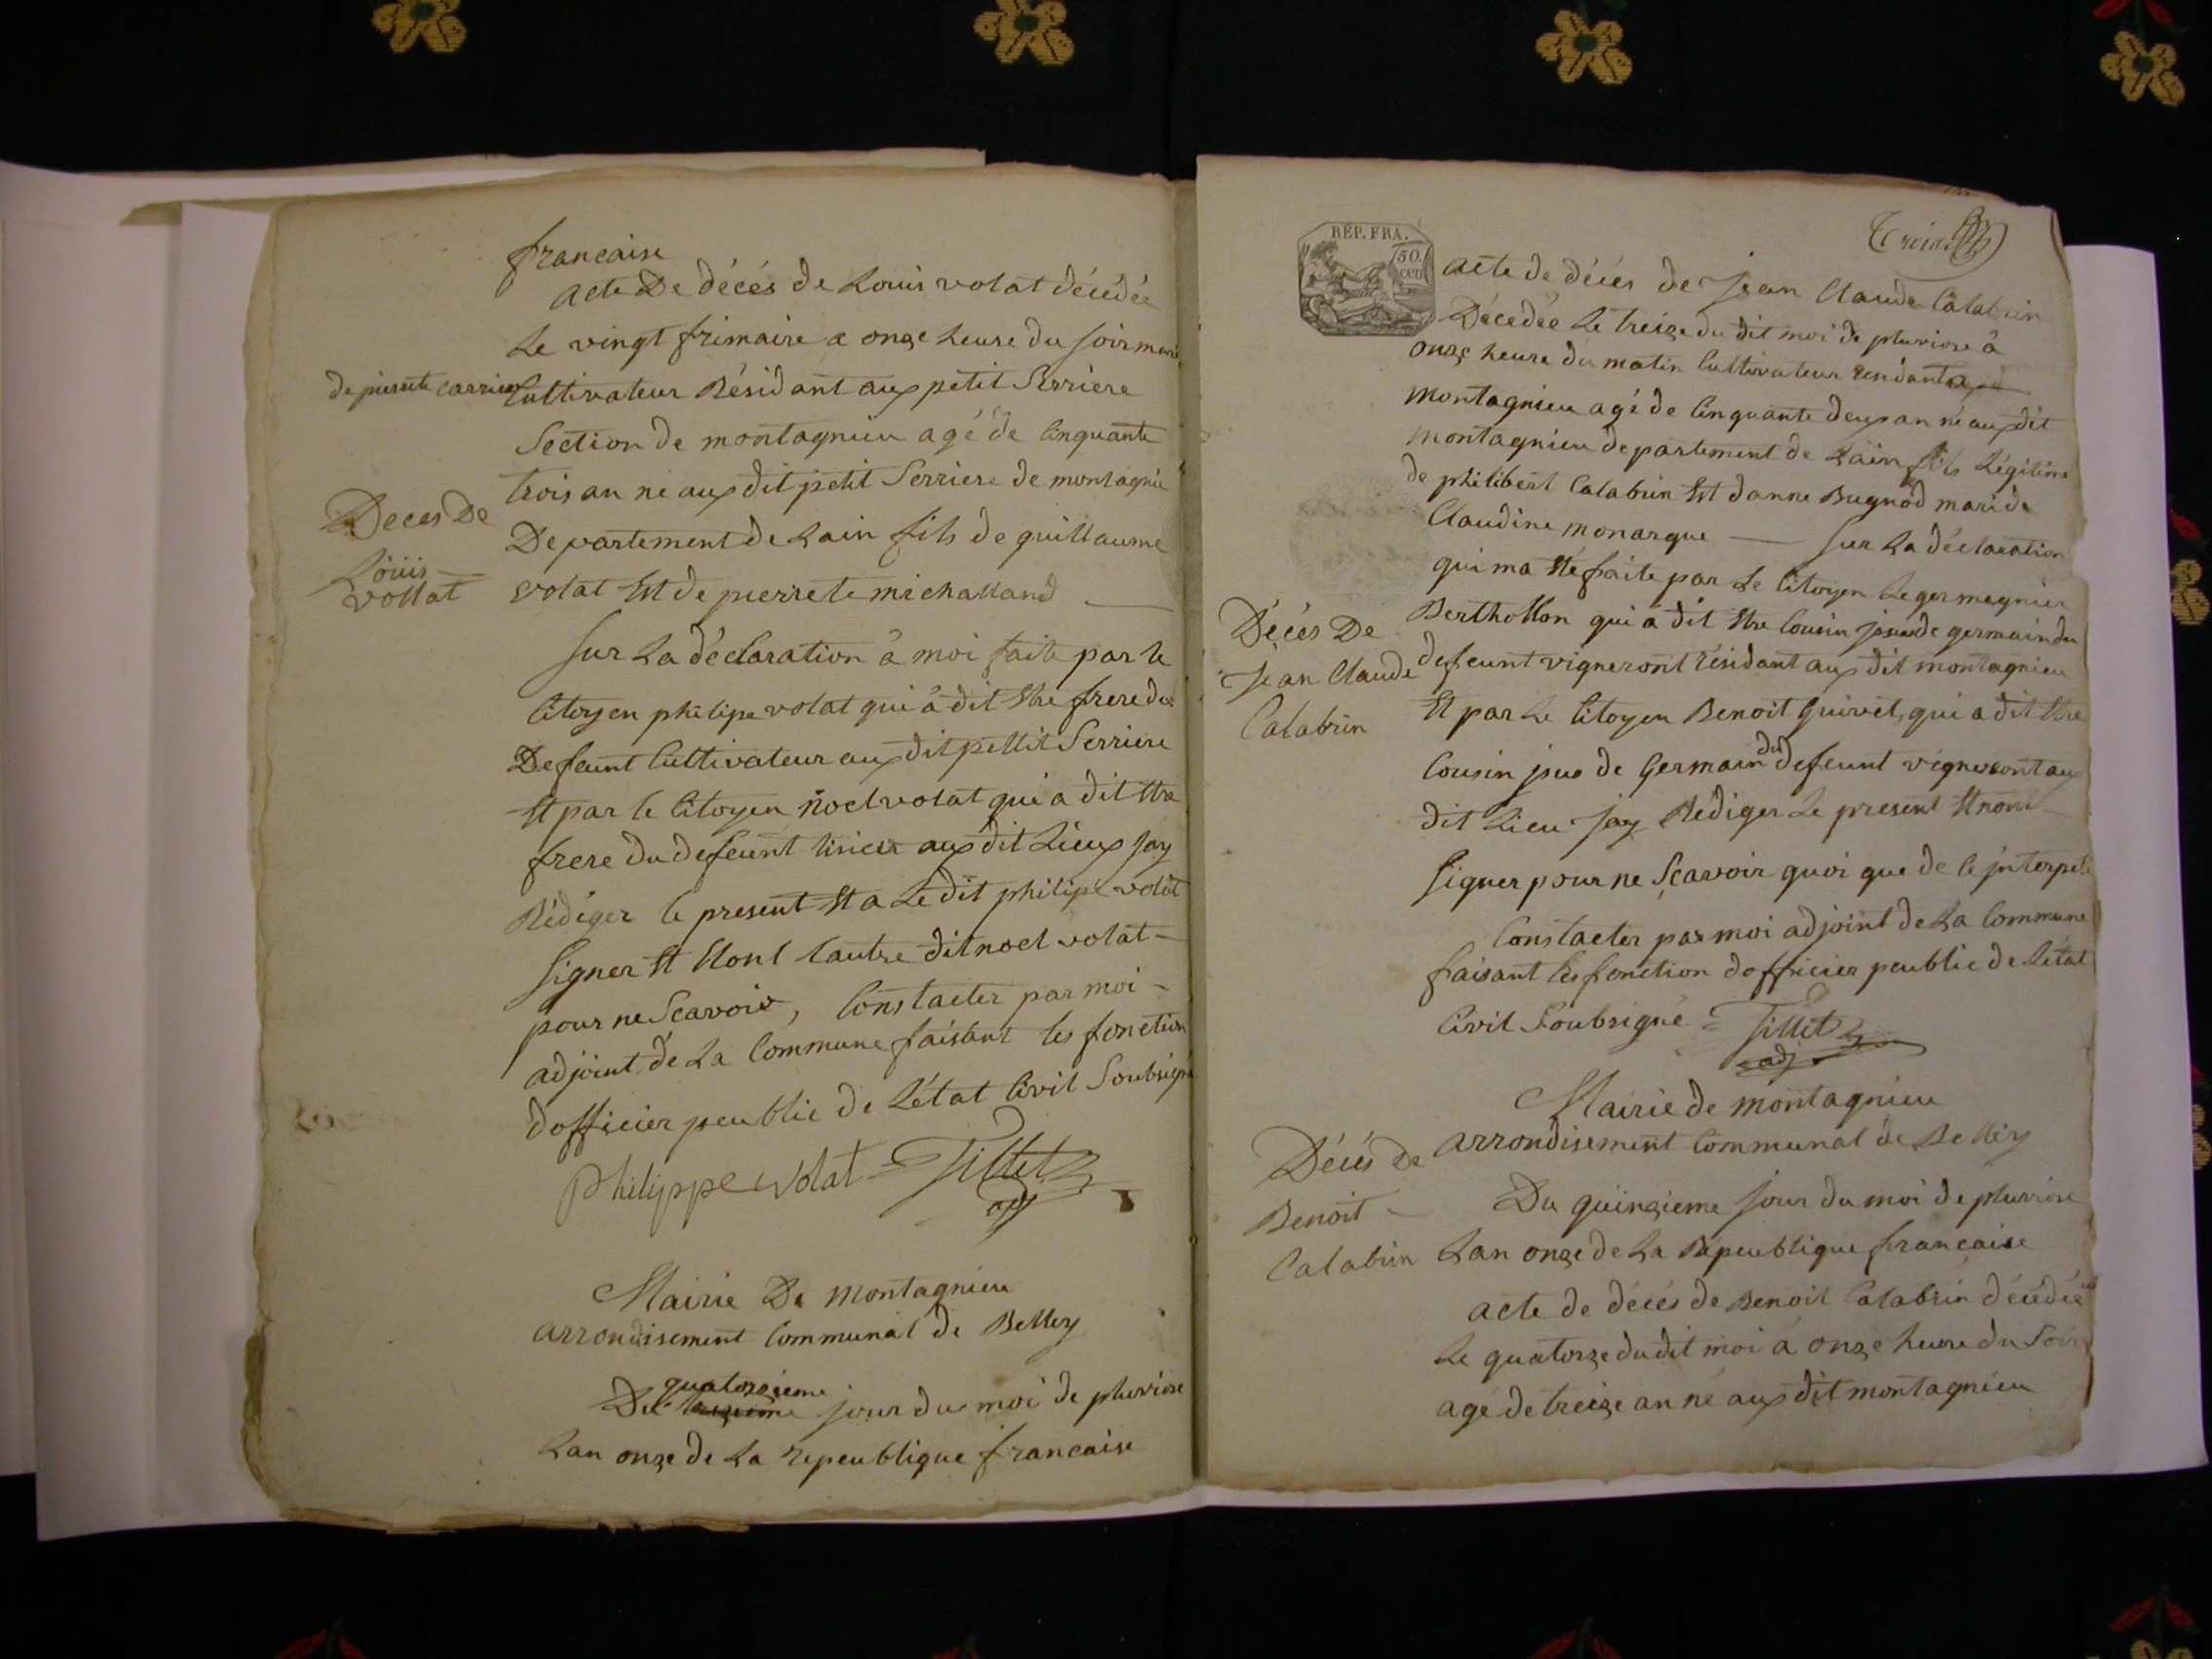 francaise
acte De décés de Louis volat décédée
Le vingt frimaire a onze heure du soir mari
de pierrete carrier
Cultivateur Résidant aux petit Serriere
Section de montagnieu agé de Cinquante
trois an né aux dit petit Serriere de montagnie
Departement de Lain fils de guillaume
volat Et de pierrete michalland
Sur La déclaration à moi faite par le
Citoyen philipe volat qui à dit Etre frere du
Defeunt Cultivateur aux dit pettit Serriere
Et par le Citoyen noel volat qui a dit Etre
frere du defeunt aux dit Lieux jay
Rédiger le present Et a Ledit philipe volat
Signer Et Nont lautre dit noel volat
pour ne Scavoir, Constacter par moi
adjoint de La Commune faisant les fonction
dofficier peublic de Létat Civil Soubsigné
Philippe volat Tillet
adj
Deces De
Louis
vollat
Mairie De montagnieu
arrondisement Communal de Belley
quatorzieme
Du treizieme jour du moi de pluviose
Lan onze de La repeublique francaise
Troi
RÉP. FRA.
50.
cen
acte de décés de Jean Claude Calabrin
Décedée Le treize du dit moi de pluviose à
onze heure du matin Cultivateur residant a
montagnieu agé de Cinquante deux an né aux dit
montagnieu departement de Lain fils Légitime
de philibert Calabrin Et danne Bugnod mari de
Claudine monarque — Sur La déclaration
qui ma Eté faite par Le Citoyen Leger magnier
Berthollon qui à dit Etre Cousin jssus de germain du
defeunt vigneront résidant aux dit montagnieu
Et par Le Citoyen Benoit Guivet, qui a dit Etre
Cousin jsus de Germain du defeunt vigneront aux
dit Lieu Jay Rédiger Le present Et nont
Signer pour ne Scavoir quoi que de le jnterpelé
Constacter par moi adjoint de La Commune
faisant les fonction dofficier peublic de Létat
Civil Soubsigné Tillet
adj
Décés De
Jean Claude
Calabrin
Mairie de montagnieu
arrondisement Communal de Belley
Du quinzieme jour du moi de pluviose
Lan onze de La Repeublique francaise
acte de décés de Benoit Calabrin décédée
Le quatorze du dit moi à onze heure du Soir
agé de treize an né aux dit montagnieu
Décés De
Benoit
Calabrin